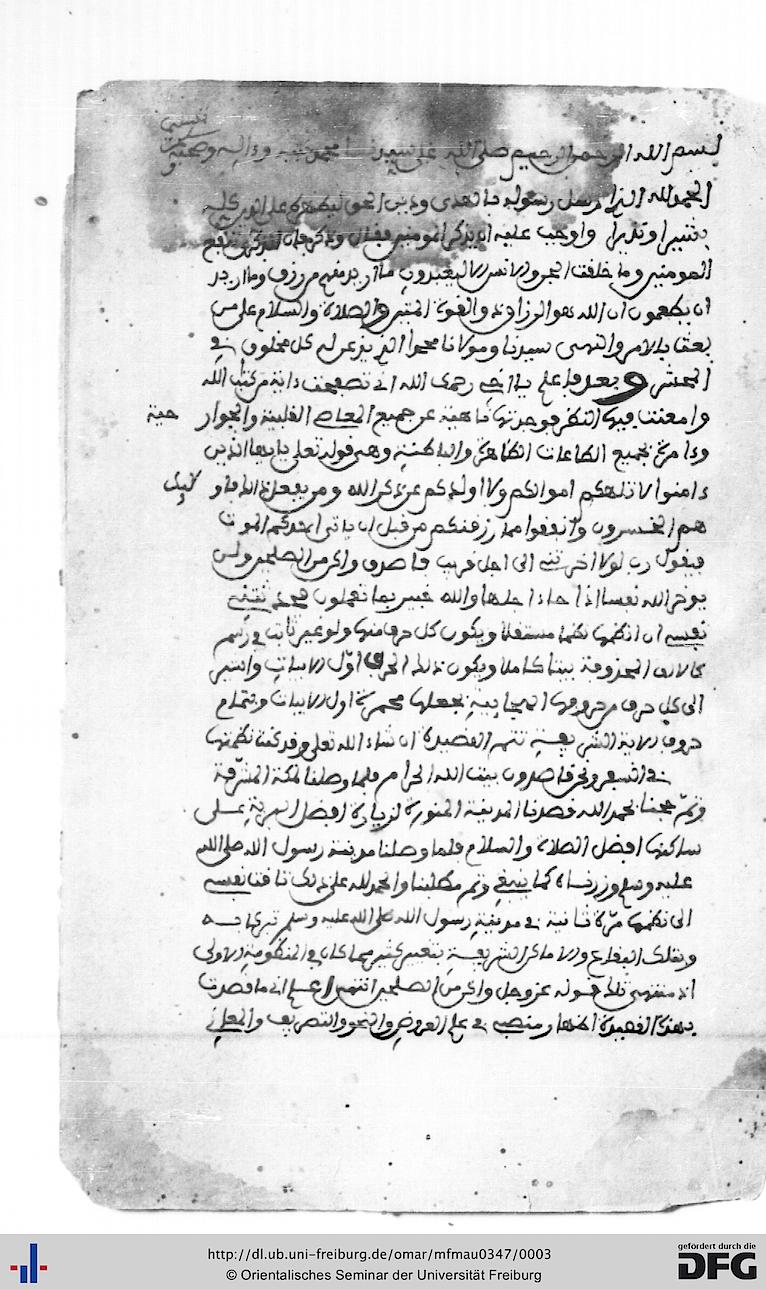 بسم الله الرحمن الرحيم صلى الله على سيدنا محمد وءاله وصحبه
الحمد لله الذي ارسل رسوله بالهدى ودين الحق ليظهره على الدين كله
بشيرا ونذيرا واوجب عليه ان يذكر المومنين فقال وذكر فإن الذكرى تنفع
المومنين وما خلقت الجن والانس الا ليعبدون ما أريد منهم من رزق وما اريد
ان يطعمون ان الله هو الرزاق ذو القوة المتين والصلاة والسلام على من
بعث بالامر والنهي سيدنا ومولانا محمد الذي يذعن له كل مخلوق في
الحشر وبعد فاعلم يا اخي رحمك الله اني تصفحت ءاية من كتاب الله
وامعنت فيها النظر فوجدتها ناهية عن جميع المعاصي القلبية والجوار
حية
وءامرة بجميع الطاعات الظاهرة والباطنة وهي قوله تعلى يايها الذين
ءامنوا لا تلهكم اموالكم ولا اولدكم عن ذكر الله ومن يفعل ذلك فاو
لئك
هم الخسرون وأنفقوا مما رزقنكم من قبل ان ياتي احدكم الموت
فيقول رب لولا اخرتني الى اجل قريب فاصدق واكن من الصلحين ولن
يوخر الله نفسا اذا جاء اجلها والله خبير بما تعملون فحدثتني
نفسي ان انظمها نظما مستقلا ويكون كل حرف منها ولو غير ثابت في رسم
كالالف المحذوفة بيتا كاملا ويكون ذلك الحرف اوّل الابيات واشير
الى كل حرف من حروفها الهجائية بجعلها محمرة اول الابيات وبتمام
حروف الاية الشريفة تتم القصيدة ان شاء الله تعلى وقد كنت نظمتها
في السفر ونحن قاصدون بيت الله الحرام فلما وصلنا لمكة المشرفة
وتمّ حجنا بحمد الله قصدنا المدينة المنورة لزيارة افضل البرية على
ساكنها افضل الصلاة والسلام فلما وصلنا مدينة رسول الله صلى الله
عليه وسلم وزرناه كما ينبغي وتم مطلبنا والحمد لله على ذلك تاقت نفسي
الى نظمها مرّة ثانية في مدينة رسول الله صلى الله عليه وسلم تبركا به
وبتلك البقاع والاماكن الشريفة بتغيير كثير مما كان في المنظومة الاولى
اذ منتهى تلك قوله عز وجل واكن من الصلحين انتهى اعلم اني ما قصدت
بهذه القصيدة اظهار منصبي في علم العروض والنحو والتصريف والمعاني
http://dl.ub.uni-freiburg.de/omar/mfmau0347/0003
© Orientalisches Seminar der Universität Freiburg
gefördert durch die
DFG